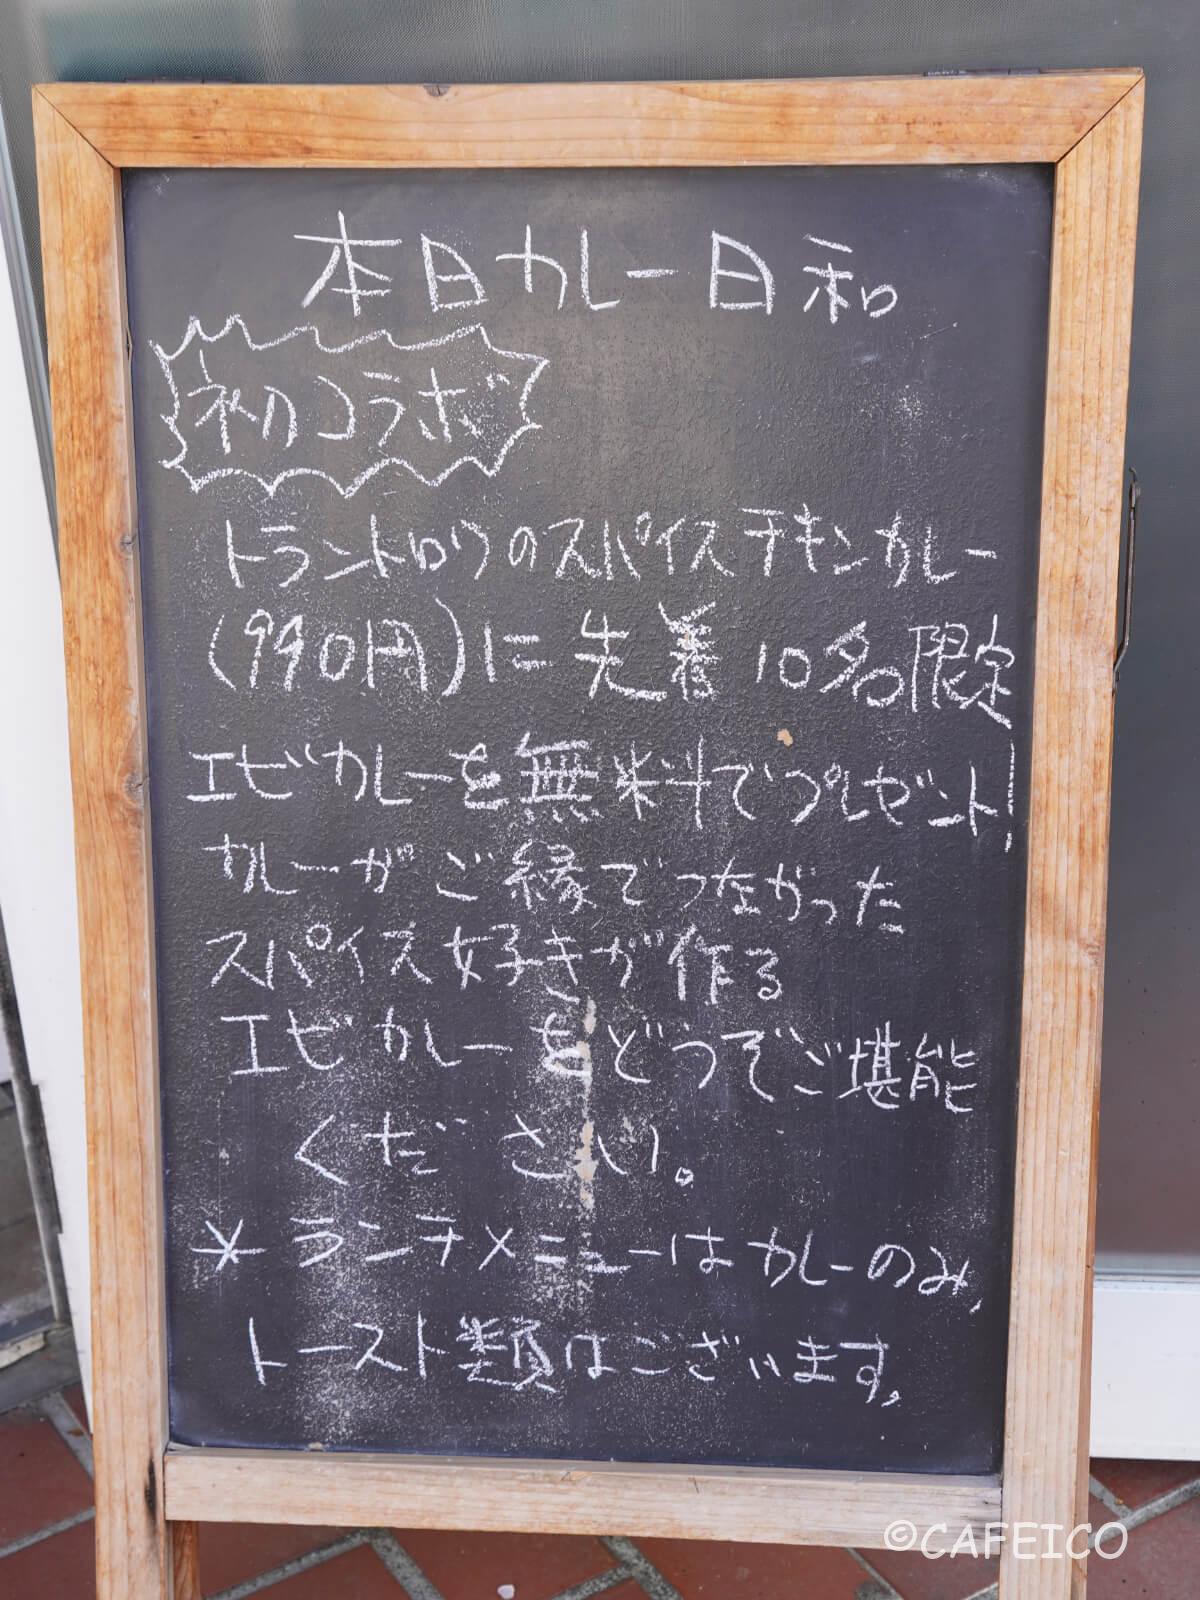 本日カレー日和
初コラボ
トラントロワのスパイスチキンカレー
(990円)に先着10名限定
エビカレーを無料でプレゼント!
カレーがご縁でつながった
スパイス好きが作る
エビカレーをどうぞご堪能
ください。
*ランチメニューはカレーのみ、
トースト類はございます。
©CAFEICO